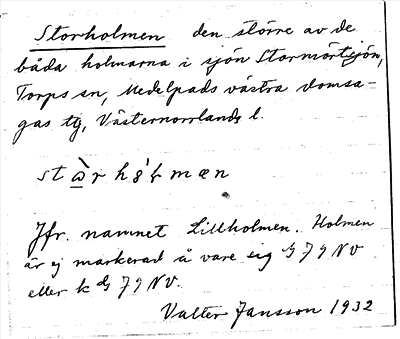 Storholmen den större av de
båda holmarna i sjön Stormörtsjön,
Torps sn, Medelpads västra domsa-
gas tg, Västernorrlands l.
Jfr. namnet Lillholmen. Holmen
är ej markerad å vare sig G 79 NV
eller k G 79 NV.
Valter Jansson 1932